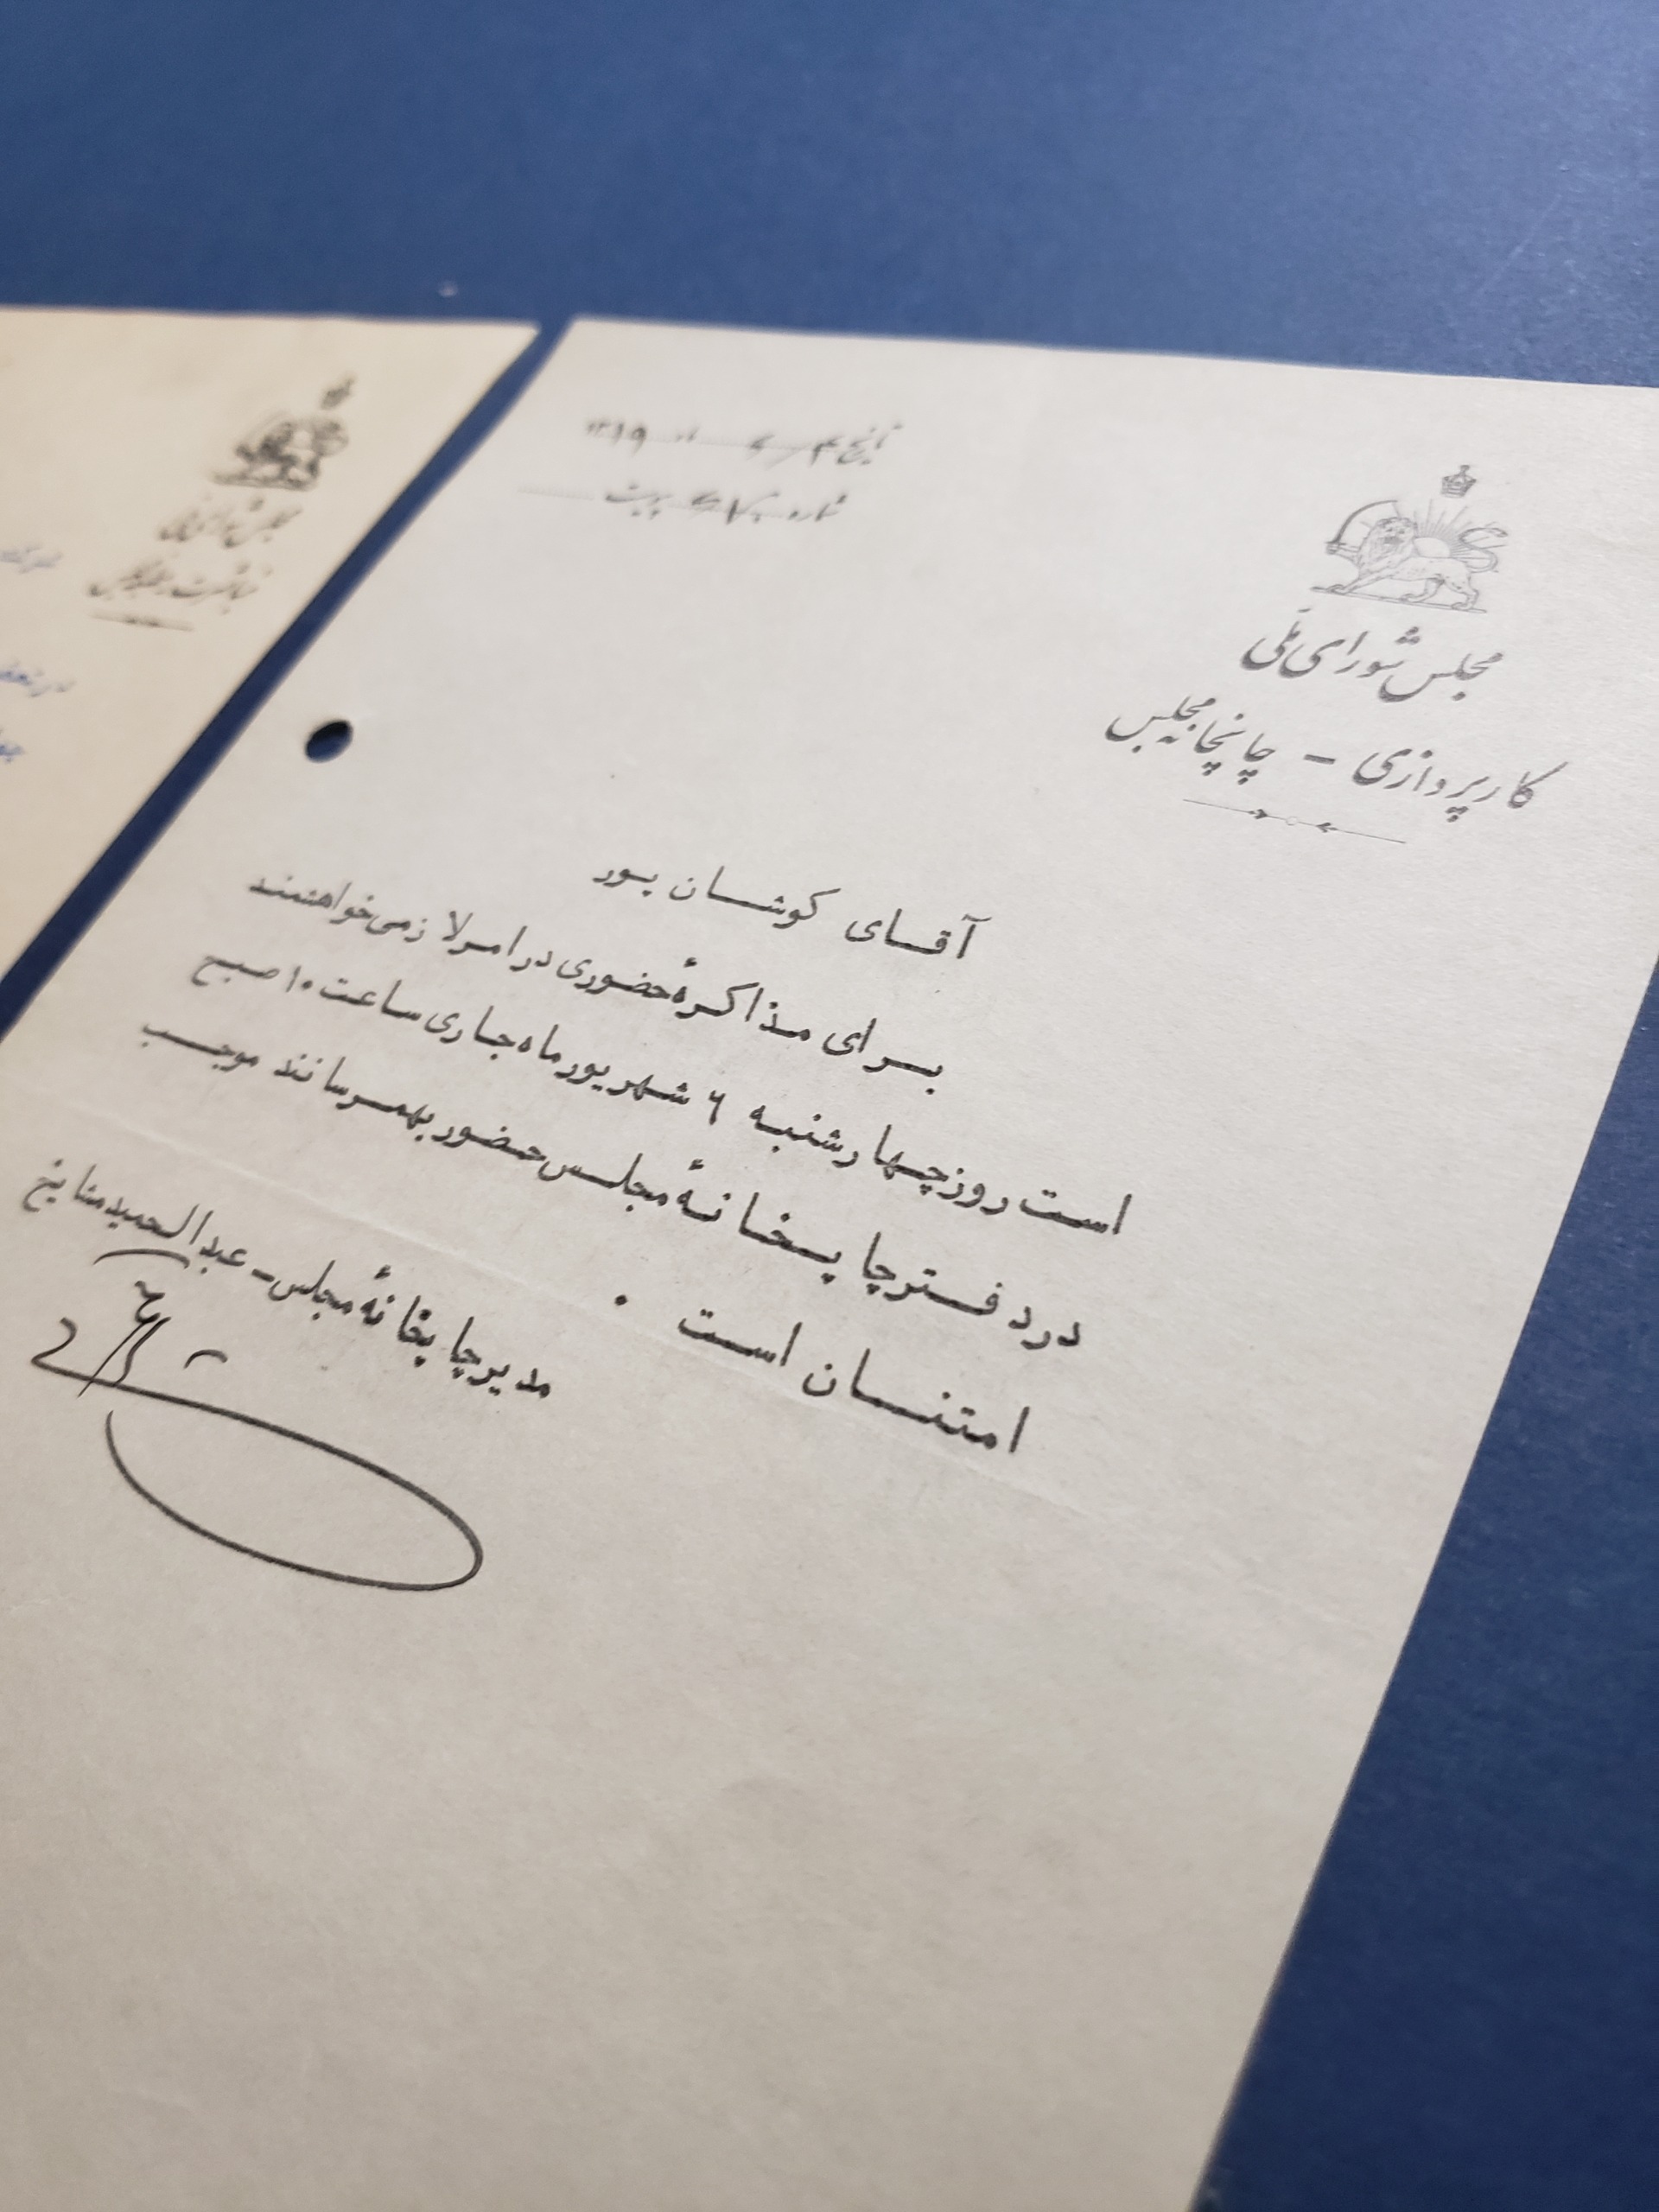 مجلس شورای ملی
کارپردازی - چاپخانه مجلس
تاریخ ۴ ۱۳۱۹
شماره
آقای کوشان پور
برای مذاکرهٔ حضوری در امر لازمی خواهشمند
است روز چهارشنبه ۶ شهریور ماه جاری ساعت ۱۰ صبح
در دفتر چاپخانهٔ مجلس حضور بهمرسانند موجب
امتنان است .
مدیر چاپخانهٔ مجلس - عبدالحمید مشایخ
مجلس شورای ملی